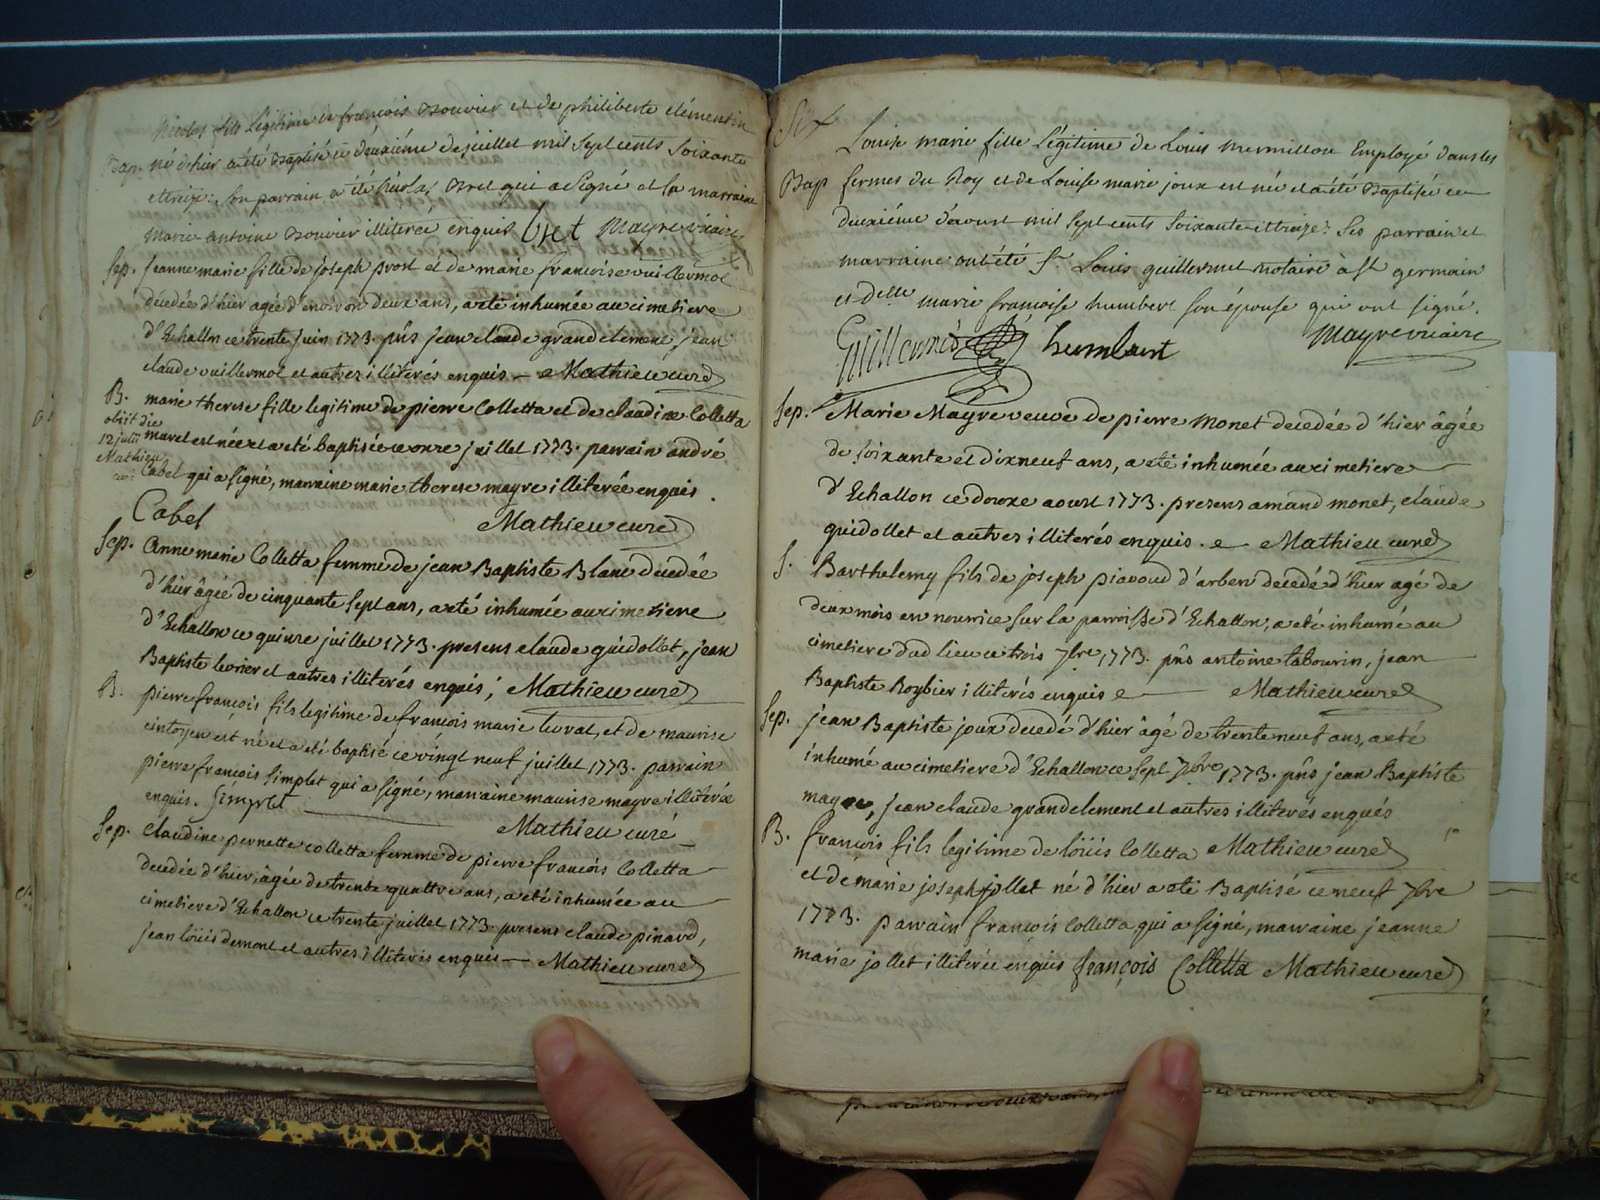 Nicolas fils légitime de françois Bouvier et de philiberte clémentin
Bap. né d'hier a été Baptisé ce deuxième de juillet mil sept cents soixante
et treize: son parrain a été Nicolas Bret qui a signé et sa marraine
Marie antoine Bouvier illiterée enquis Bret Mayre vicaire
Sep. Jeanne marie fille de joseph prost et de marie francoise vuillermoz
décedée d'hier agée d'environ deux ans, a été inhumée au cimetiere
d'Echallon ce trente juin 1773. pñs jean claude grandclement, jean
claude vuillermoz et autres illiterés enquis — Mathieu curé
B. marie therese fille legitime de pierre Colletta et de claudine Colletta
obiit die
12 julii
Mathieu
curé
maret est née et a eté baptisée ce onze juillet 1773. parrain andré
Cabel qui a signé, marraine marie therese mayre illiterée enquis.
Cabel Mathieu curé
Sep. Anne marie Colletta femme de jean Baptiste Blanc décedée
d'hier âgée de cinquante sept ans, a eté inhumée au cimetiere
d'Echallon ce quinze juillet 1773. presens claude guidollet, jean
Baptiste levrier et autres illiterés enquis, Mathieu curé
B. pierre françois fils legitime de françois marie levrat, et de maurise
cintoyen est né et a eté baptisé ce vingt neuf juillet 1773. parrain
pierre françois simplet qui a signé, marraine maurise mayre illiterée
enquis. Simplet Mathieu curé
Sep. Claudine pernette colletta femme de pierre françois Colletta
decedée d'hier, âgée de trente quattre ans, a eté inhumée au
cimetiere d'Echallon ce trente juillet 1773. presens claude pinard,
jean loüis demont et autres illiterés enquis — Mathieu curé
Six
Louise marie fille légitime de Louis mermillon Employé dans les
Bap fermes du Roy et de Louise marie joux est né et a été Baptisée ce
deuxième d'aoust mil sept cents soixante et treize: Ses parrain et
marraine ont été Sr. Louis guillermet notaire à st germain
et delle marie françoise humbert son épouse qui ont signé.
Guillermet humbert Mayre vicaire
Sep. Marie Mayre veuve de pierre Monet decedée d'hier âgée
de soixante et dix neuf ans, a eté inhumée au cimetiere
d'Echallon ce douze aoust 1773. presens amand monet, claude
guidollet et autres illiterés enquis. Mathieu curé
S. Barthelemy fils de joseph piavoud d'arben decedé d'hier agé de
deux mois en nourrice sur la parroisse d'Echallon, a eté inhumé au
cimetiere dud lieu ce trois 7bre 1773. pñs antoine tabourin, jean
Baptiste Roybier illiterés enquis Mathieu curé
Sep. jean Baptiste joux decedé d'hier âgé de trente neuf ans, a eté
inhumé au cimetiere d'Echallon ce sept 7bre 1773. pñs jean Baptiste
mayre, jean claude grandclement et autres illiterés enqués
B. françois fils legitime de loüis Colletta Mathieu curé
et de marie joseph jollet né d'hier a eté Baptisé ce neuf 7bre
1773. parrain françois Colletta qui a signé, marraine jeanne
marie jollet illiterée enquis françois Colletta Mathieu curé